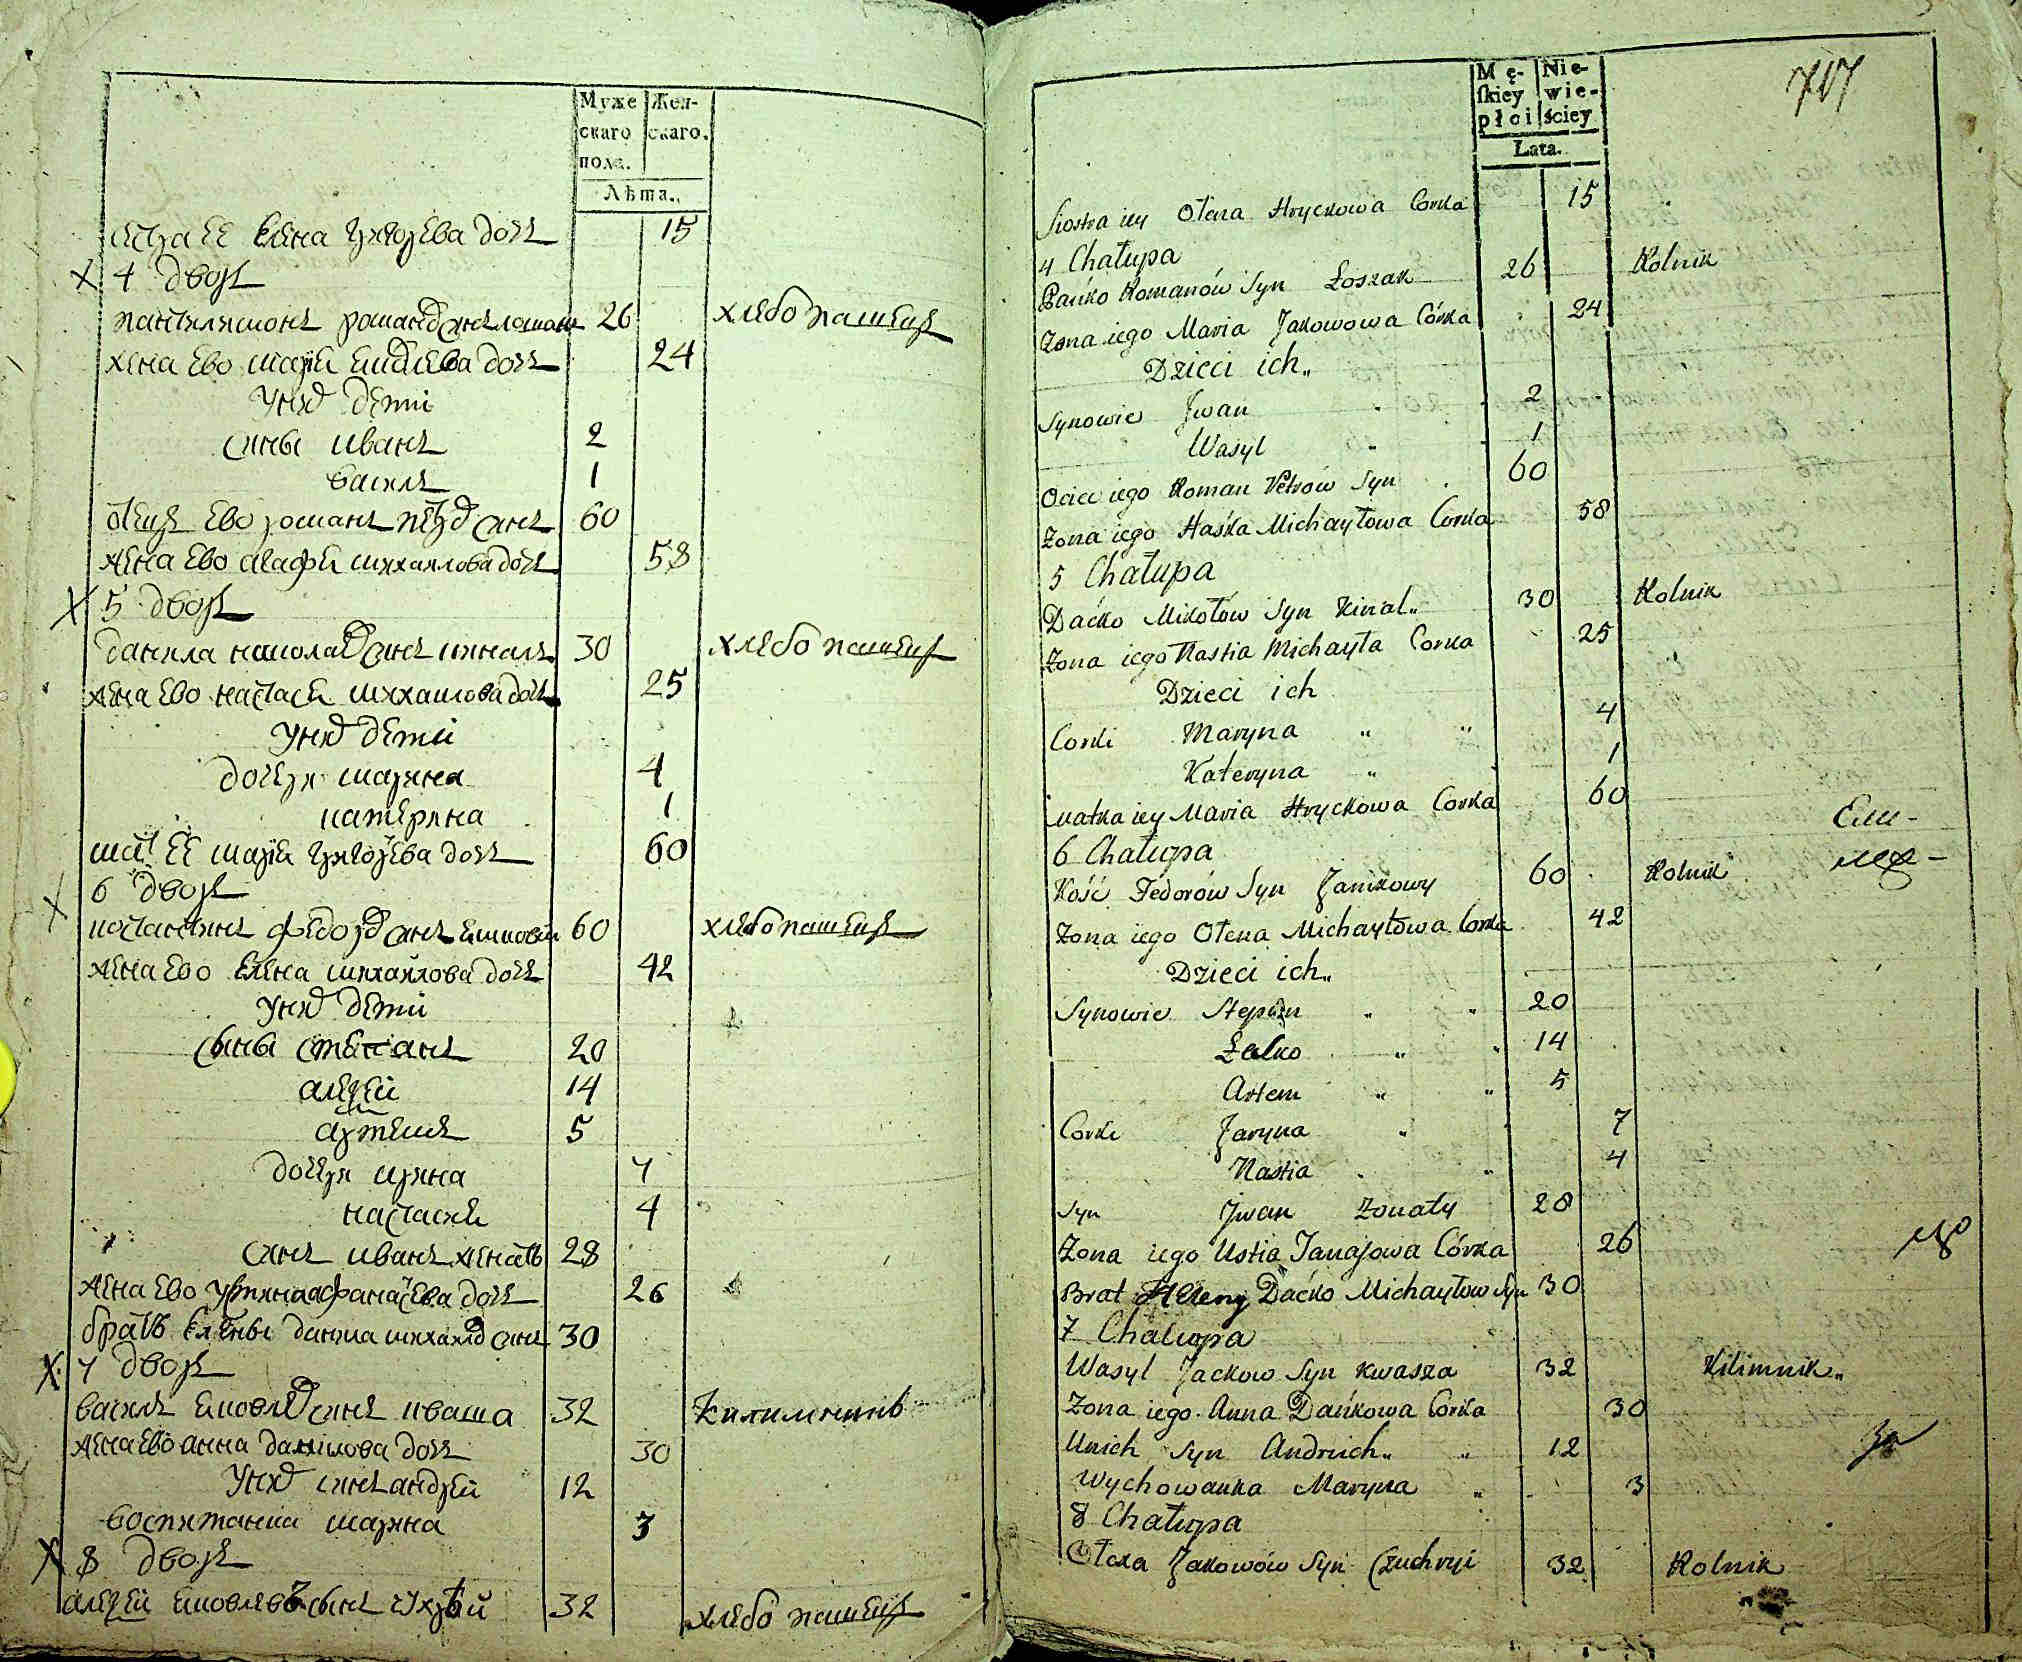 Муже Жен-
скаго скаго.
пола.
Лѣта.
сестра ее Елена григорьева дочь 15
4 дворъ
пантелимонъ романов сынъ лошакъ 26 хлебопашецъ
жена ево мария яковлева дочь 24
у них дети
сыны иванъ 2
василь 1
отецъ ево романъ петров сынъ 60
жена ево агафия михайлова дочь 58
5 дворъ
данила николаев сынъ киналь 30 хлебопашецъ
жена ево настасья михайлова дочь 25
у них дети
дочери марина 4
катерина 1
мать ее мария григорьева дочь 60
6 дворъ
костантинъ федоров сынъ 60 хлебопашецъ
жена ево Елена михайлова дочь 42
у них дети
сыны степанъ 20
алексей 14
артемъ 5
дочери ирина 7
настасия 4
сынъ иванъ женатъ 28
жена ево устина афанасьева дочь 26
братъ Елены данила михайлов сынъ 30
7 дворъ
василь яковлев сынъ кваша 32 Килимникъ
жена ево анна данилова дочь 30
у них сынъ андрей 12
воспитанка марина 3
8 дворъ
алексей яковлевъ сынъ чухрѣй 32 хлебопашецъ
Mę- Nie-
ſkiey wie-
płci ściey
Lata.
717
Siostra iey Ołena Hryckowa Corka 15
4 Chałupa
Pańko Romanów Syn Łoszak 26 Rolnik
Zona iego Maria Jakowowa Córka 24
Dzieci ich
Synowie Jwan 2
Wasyl 1
Ociec iego Roman Petrów Syn 60
Zona iego Haśka Michayłowa Corka 58
5 Chałupa
Daćko Mikołów Syn Kinal 30 Rolnik
Zona iego Nastia Michayła Corka 25
Dzieci ich
Corki Maryna 4
Kateryna 1
matka iey Maria Hryckowa Corka 60
6 Chałupa
Kość Fedorów Syn Janikowy 60 Rolnik
Zona iego Ołena Michayłowa Corka 42
Dzieci ich
Synowie Stepan 20
Łesko 14
Artem 5
Corki Jaryna 7
Nastia 4
Syn Jwan Zonaty 28
Zona iego Ustia Panasowa Córka 26
Brat Heleny Daćko Michayłow Syn 30
7 Chałupa
Wasyl Jackow Syn Kwasza 32 Kilimnik
Zona iego Anna Dańkowa Corka 30
U nich Syn Andruch 12
Wychowanka Maryna 3
8 Chałupa
Ołexa Jakowów Syn Czuchryi 32 Rolnik